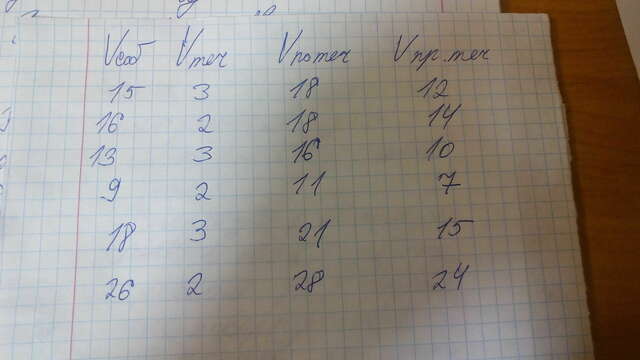 Vсоб Vтеч Vпо теч Vпр. теч
15 3 18 12
16 2 18 14
13 3 16 10
9 2 11 7
18 3 21 15
26 2 28 24